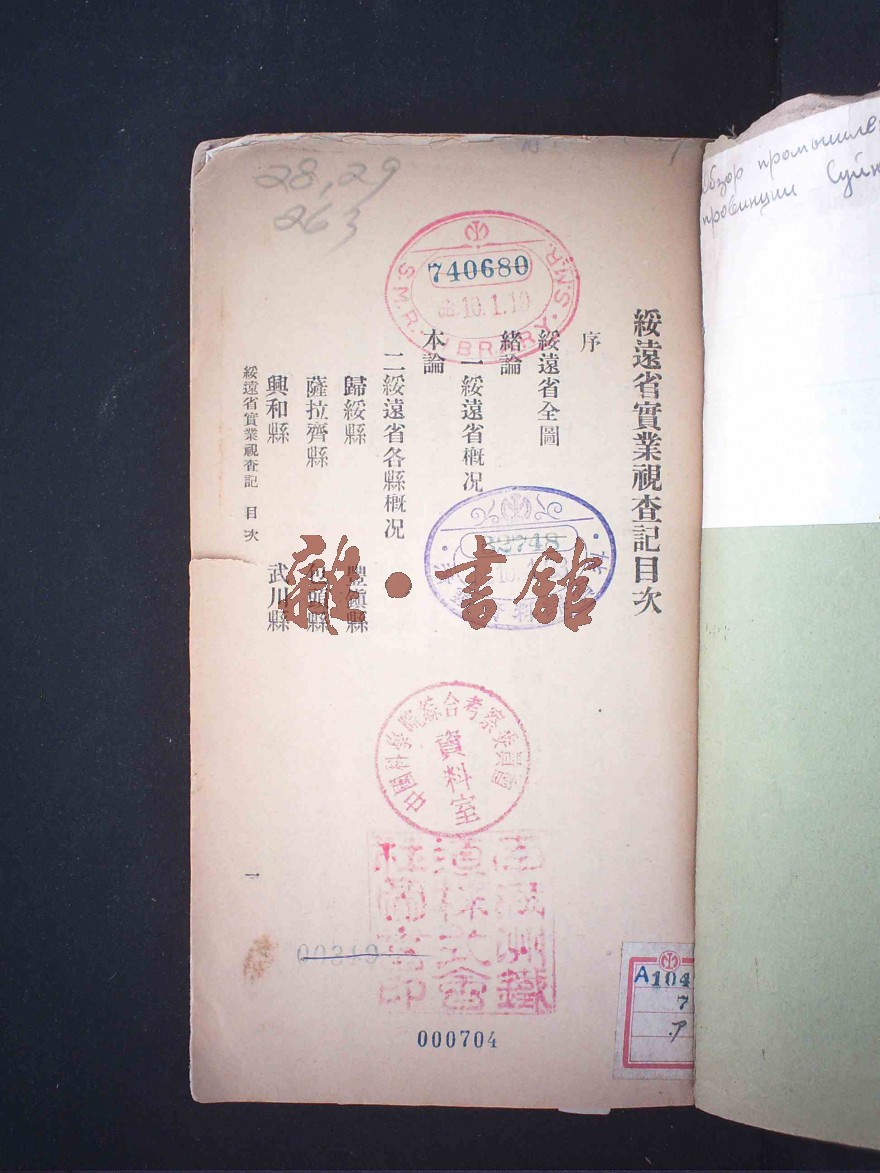 綏遠省實業視查記目次
序
綏遠省全圖
緒論
一 綏遠省概况
本論
二 綏遠省各縣概况
歸綏縣 豐鎭縣
薩拉齊縣 包頭縣
興和縣 武川縣
綏遠省實業視查記 目次
一
28,29
263
740680
10.1.10
S.M.R. LIBRARY S.M.R.
32748
雜·書館
中國科學院綜合考察委員會
資料室
南滿洲鐵
道株式會
社圖書印
00319
000704
A104
7
ア
обзор промышлен
провинции Суйю